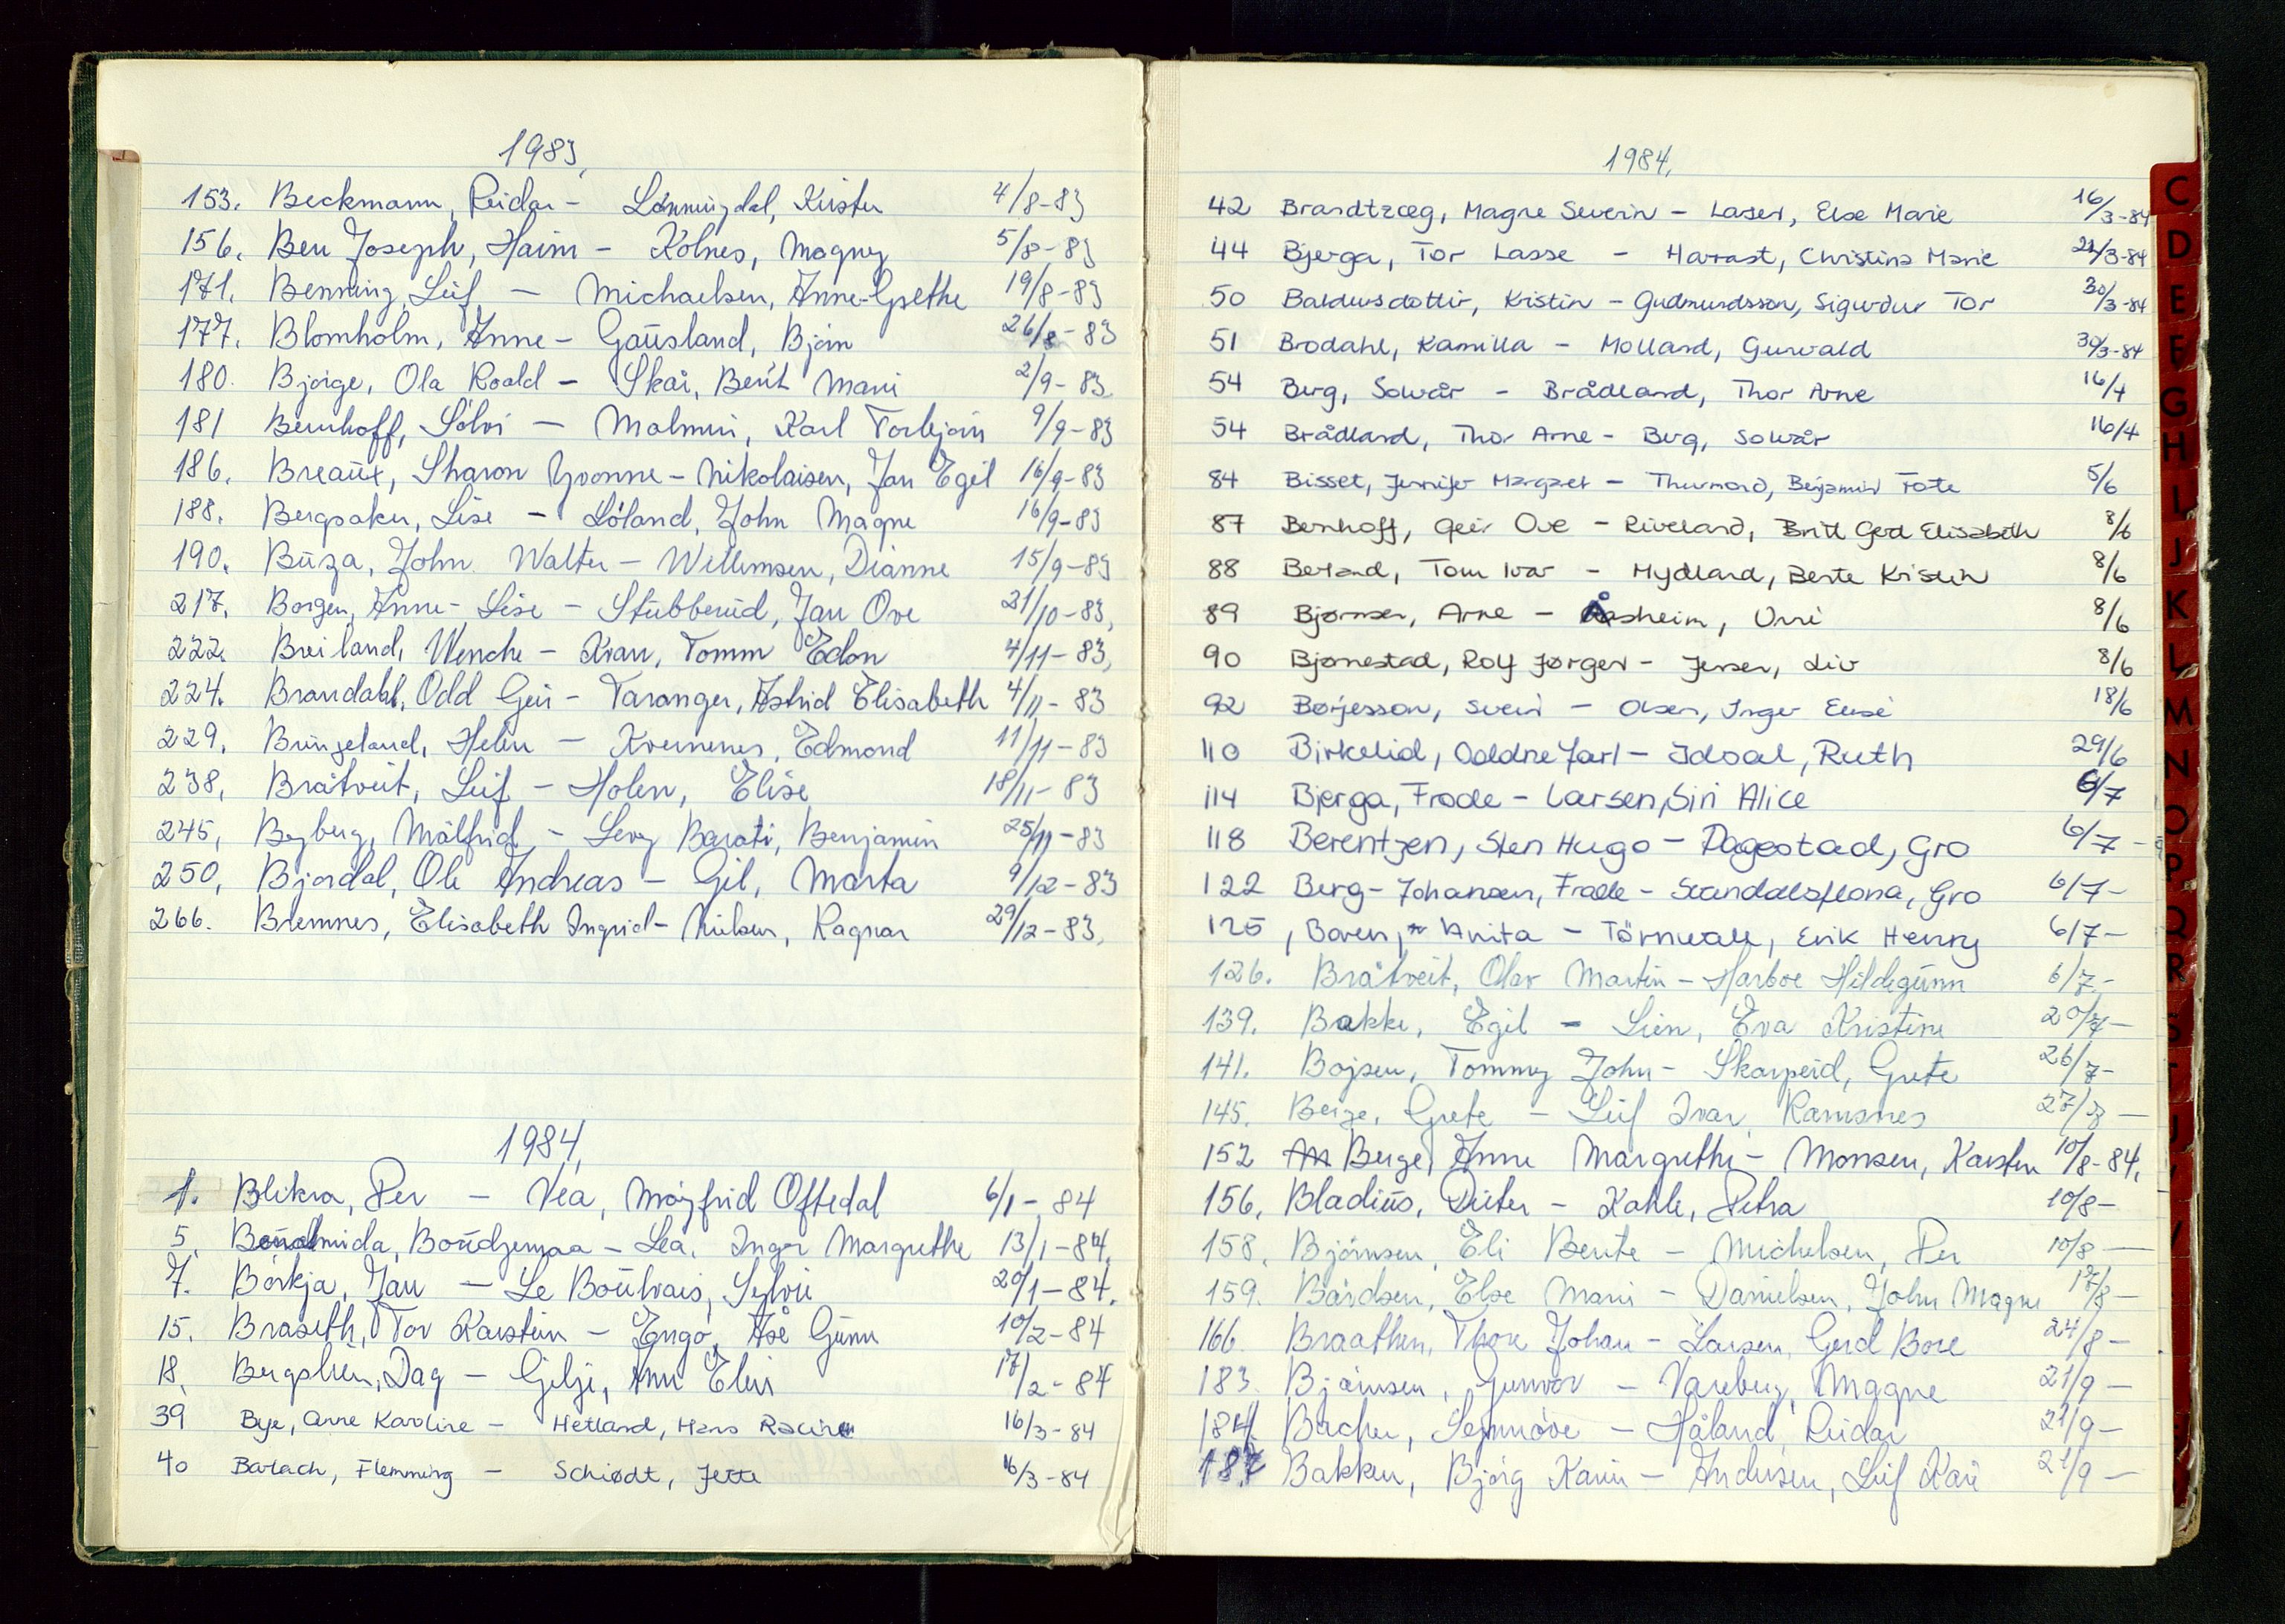 1983,
153. Beckmann, Reidar - Lønningdal, Kirsten 4/8-83
156. Ben Joseph, Haim - Kolnes, Magny 5/8-83
171. Benning, Leif - Michaelsen, Anne-Grethe 19/8-83
177. Blomholm, Anne - Gausland, Bjørn 26/8-83
180. Bjørge, Ola Roald - Skår, Berit Mari 2/9-83
181 Bernhoff, Sølvi - Malmin, Karl Torbjørn 9/9-83
186. Breaux, Sharon Yvonne - Nikolaisen, Jan Egil 16/9-83
188. Bergsaker, Lise - Løland, John Magne 16/9-83
190. Buza, John Walter - Willemsen, Dianne 15/9-83
217. Borgen, Anne-Lise - Stubberud, Jan Ove 21/10-83,
222. Breiland, Wenche - Kran, Tomm Edon 4/11-83,
224. Brandahl, Odd Geir - Taranger, Astrid Elisabeth 4/11-83
229. Bringeland, Helen - Kvernenes, Edmond 11/11-83
238, Bråtveit, Leif - Holen, Elise 18/11-83
245, Byberg, Målfrid - Levy Barati, Benjamin 25/11-83
250, Bjordal, Ole Andreas - Gil, Marta 9/12-83
266. Bremnes, Elisabeth Ingrid - Nielsen, Ragnar 29/12-83,
1984,
1. Blikra, Per - Vea, Møyfrid Oftedal 6/1-84
5. Boudjemaa - Lea, Inger Margrethe 13/1-84.
7. Børkja, Jan - Le Boulvais, Sylvie 20/1-84.
15. Braseth, Tor Karstein - Engø, Åse Gunn 10/2-84
18, Bergslien, Dag - Gilje, Ann Elin 17/2-84
39 Bye, Anne Karoline - Hetland, Hans 16/3-84
40 Barlach, Flemming - Schiødt, Jette 16/3-84
1984,
42 Brandtzæg, Magne Severin - Laser, Else Marie 16/3-84
44 Bjerga, Tor Lasse - Harast, Christina Marie /3-84
50 Baldursdottir, Kristin - Gudmundsson, Sigurdur Tor 30/3-84
51 Brodahl, Kamilla - Molland, Gunvald 30/3-84
54 Berg, Solvår - Brådland, Thor Arne 16/4
54 Brådland, Thor Arne - Berg, Solvår 16/4
84 Bisset, Jennifer Margaret - Thurmond, Benjamin Tate 5/6
87 Bernhoff, Geir Ove - Riveland, Britt Gerd Elisabeth 8/6
88 Berland, Tom Ivar - Mydland, Berte Kristin 8/6
89 Bjørnsen, Arne - Åsheim, Unni 8/6
90 Bjørnestad, Rolf Jørgen - Jensen, Liv 8/6
92 Børjesson, Svein - Olsen, Inger Elise 18/6
110 Birkelid, Oddne Jarl - Idsal, Ruth 29/6
114 Bjerga, Frode - Larsen, Siri Alice 6/7
118 Berentzen, Sten Hugo - Dagestad, Gro 6/7 -
122 Berg-Johansen, Frode - Gro 6/7-
125, Boren, Anita - Törnwall, Erik Henry 6/7-
126. Bråtveit, Olav Martin - Harboe Hildegunn 6/7.-
139. Bakke, Egil - Lien, Eva Kristine 20/7-
141. Bojsen, Tommy John - Skarpeid, Grete 26/7-
145. Berge, Grete - Leif Ivar Ramsnes 27/7 -
152 Berge, Anne Margrethe - Monsen, Karsten 10/8-84,
156, Bladius, Dieter - Kahle, Petra 10/8-
158, Bjørnsen, Eli Bente - Michelsen, Per 10/8 -
159. Bårdsen, Else Marie - Danielsen, John Magne 17/8 -
166 Braathen, Thore Johan - Larsen, Gerd Bore 24/8 -
183. Bjørnsen, Gunvor - Vareberg, Magne 21/9 -
184 Bucher, Synnøve - Håland, Reidar 21/9-
187 Bakken, Bjørg Karin - Andersen, Leif Kåre 21/9 -
C
D
E
F
G
H
I
J
K
L
M
N
O
P
Q
R
S
T
U
V